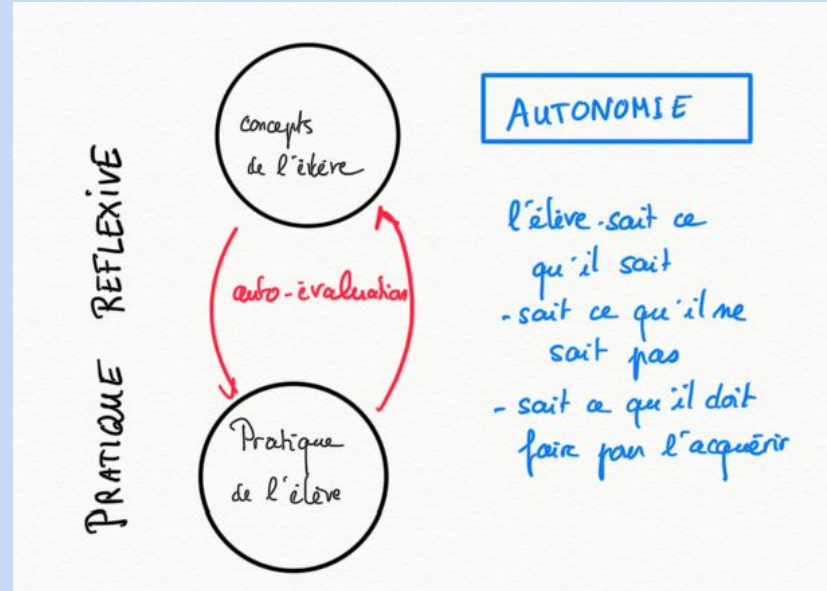 PRATIQUE REFLEXIVE
concepts
de l'élève
auto-évaluation
Pratique
de l'élève
AUTONOMIE
l'élève - sait ce
qu'il sait
- sait ce qu'il ne
sait pas
- sait ce qu'il doit
faire pour l'acquérir